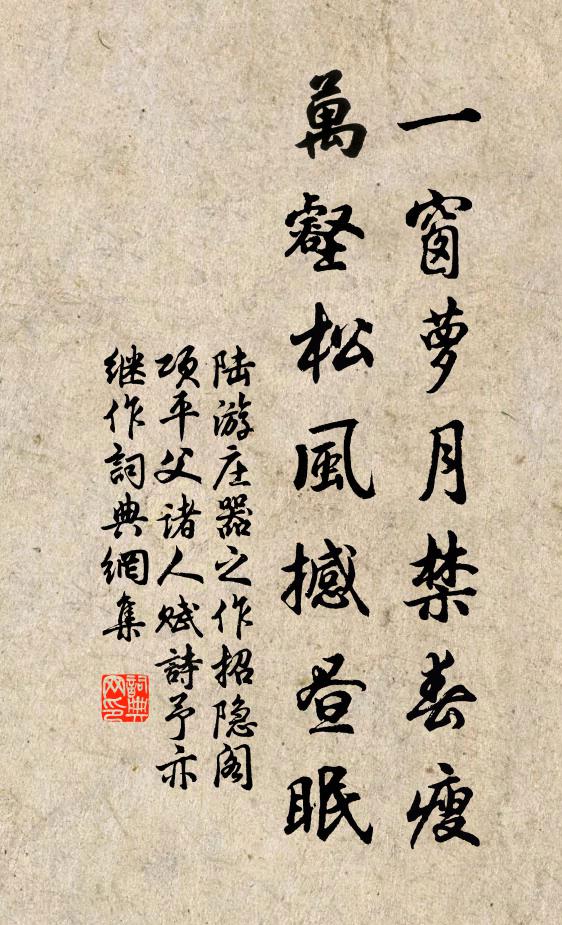 一窗萝月禁春瘦
萬壑松風撼昼眠
陆游庄器之作招隐阁
项平父诸人赋詩予亦
继作詞典網集
詞典
网印